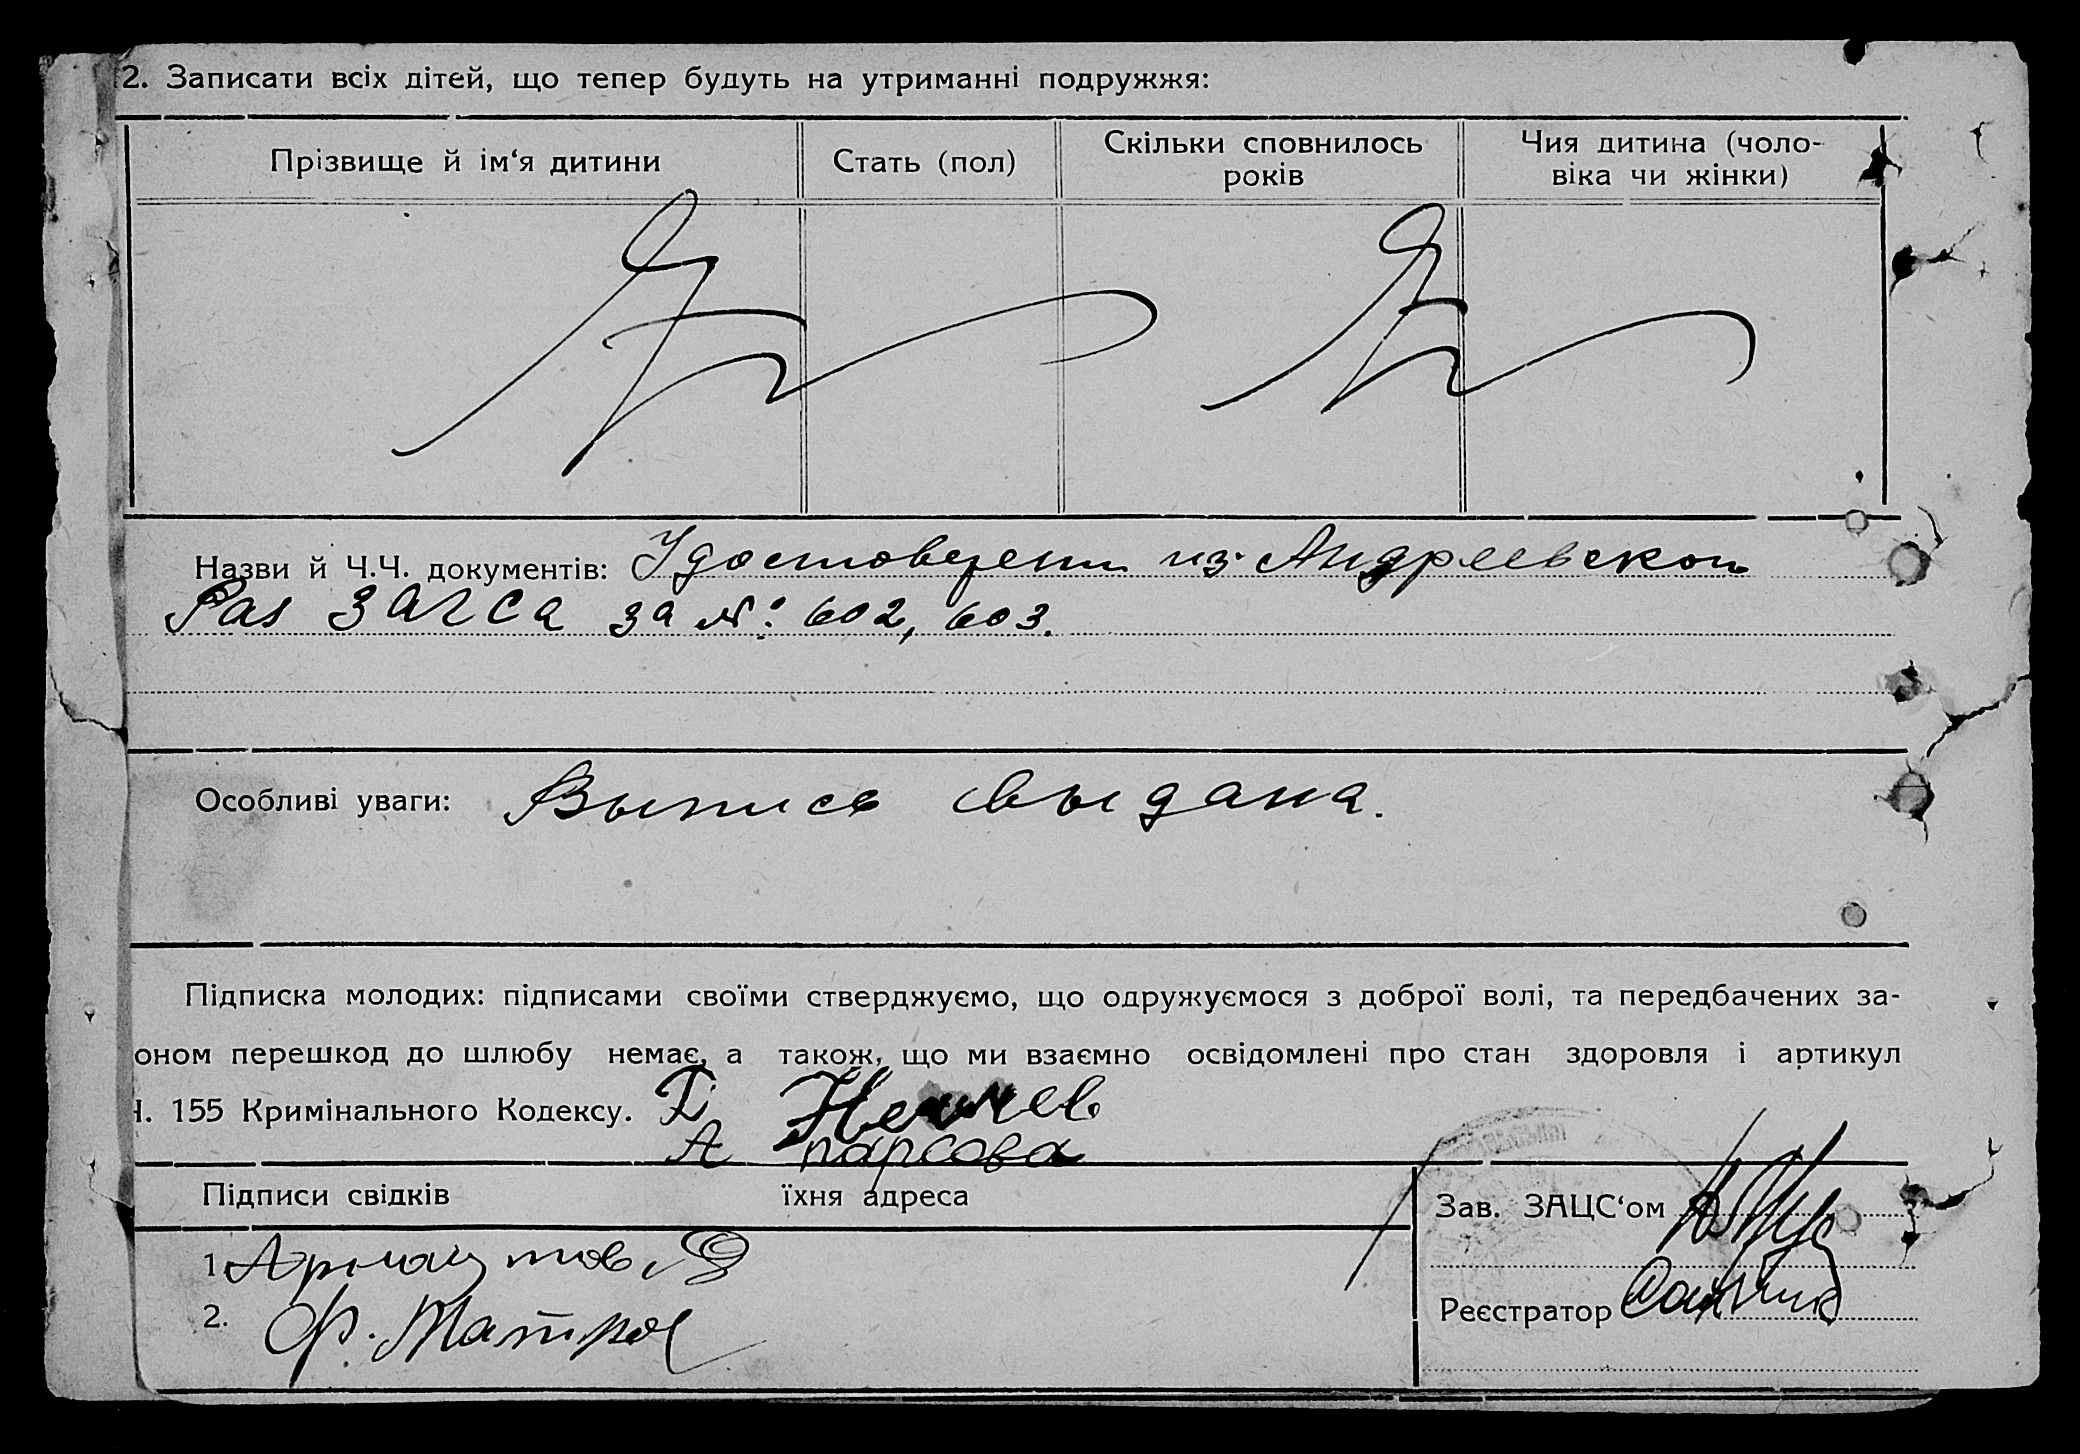 2. Записати всіх дітей, що тепер будуть на утриманні подружжя:
Прізвище й ім‘я дитини
Стать (пол)
Скільки сповнилось
років
Чия дитина (чоло-
віка чи жінки)
Назви й Ч.Ч. документів: Удостоверени из Андреевском
Раг ЗАГСа за №: 602, 603.
Особливі уваги: Выпись выдана.
Підписка молодих: підписами своїми стверджуємо, що одружуємося з доброї волі, та передбачених за-
оном перешкод до шлюбу немає, а також, що ми взаємно освідомлені про стан здоровля і артикул
Ч. 155 Кримінального Кодексу.
А Парсова
Підписи свідків
їхня адреса
Зав. ЗАЦС‘ом
1. Арнаутов
2. Ф.
Реєстратор